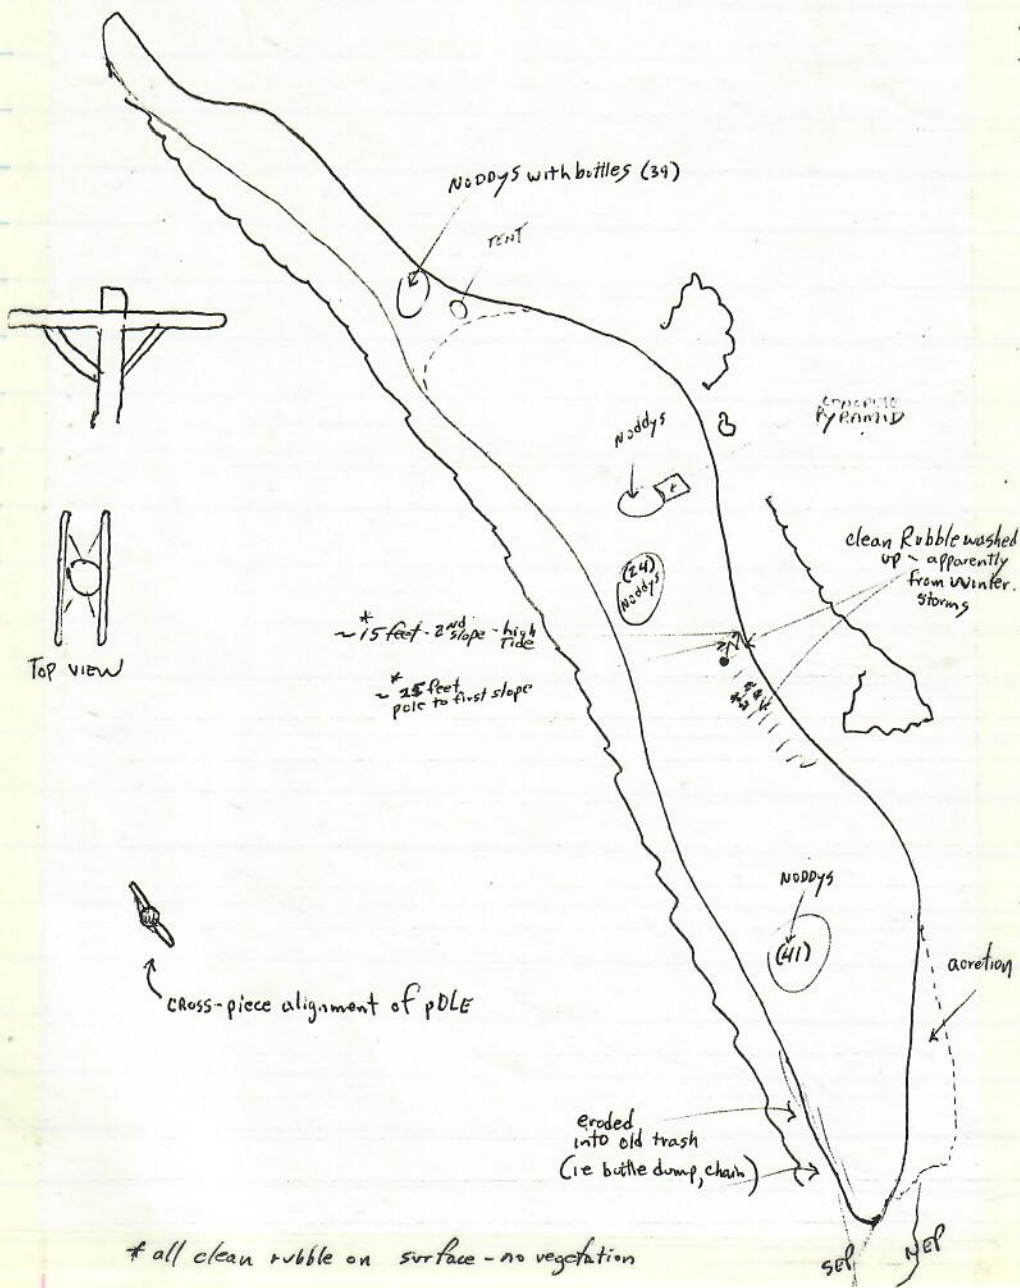 NoDDYS with bottles (39)
TENT
Noddys
PYRAMID
clean Rubble washed
up - apparently
from Winter.
storms
(24)
Noddys
* ~15 feet - 2nd slope - high Tide
* ~ 25 feet
pole to first slope
Top VIEW
NODDYS
(41)
acretion
CROSS-piece alignment of pOLE
eroded
into old trash
(ie bottle dump, chain)
* all clean rubble on surface - no vegetation
SEP
NEP